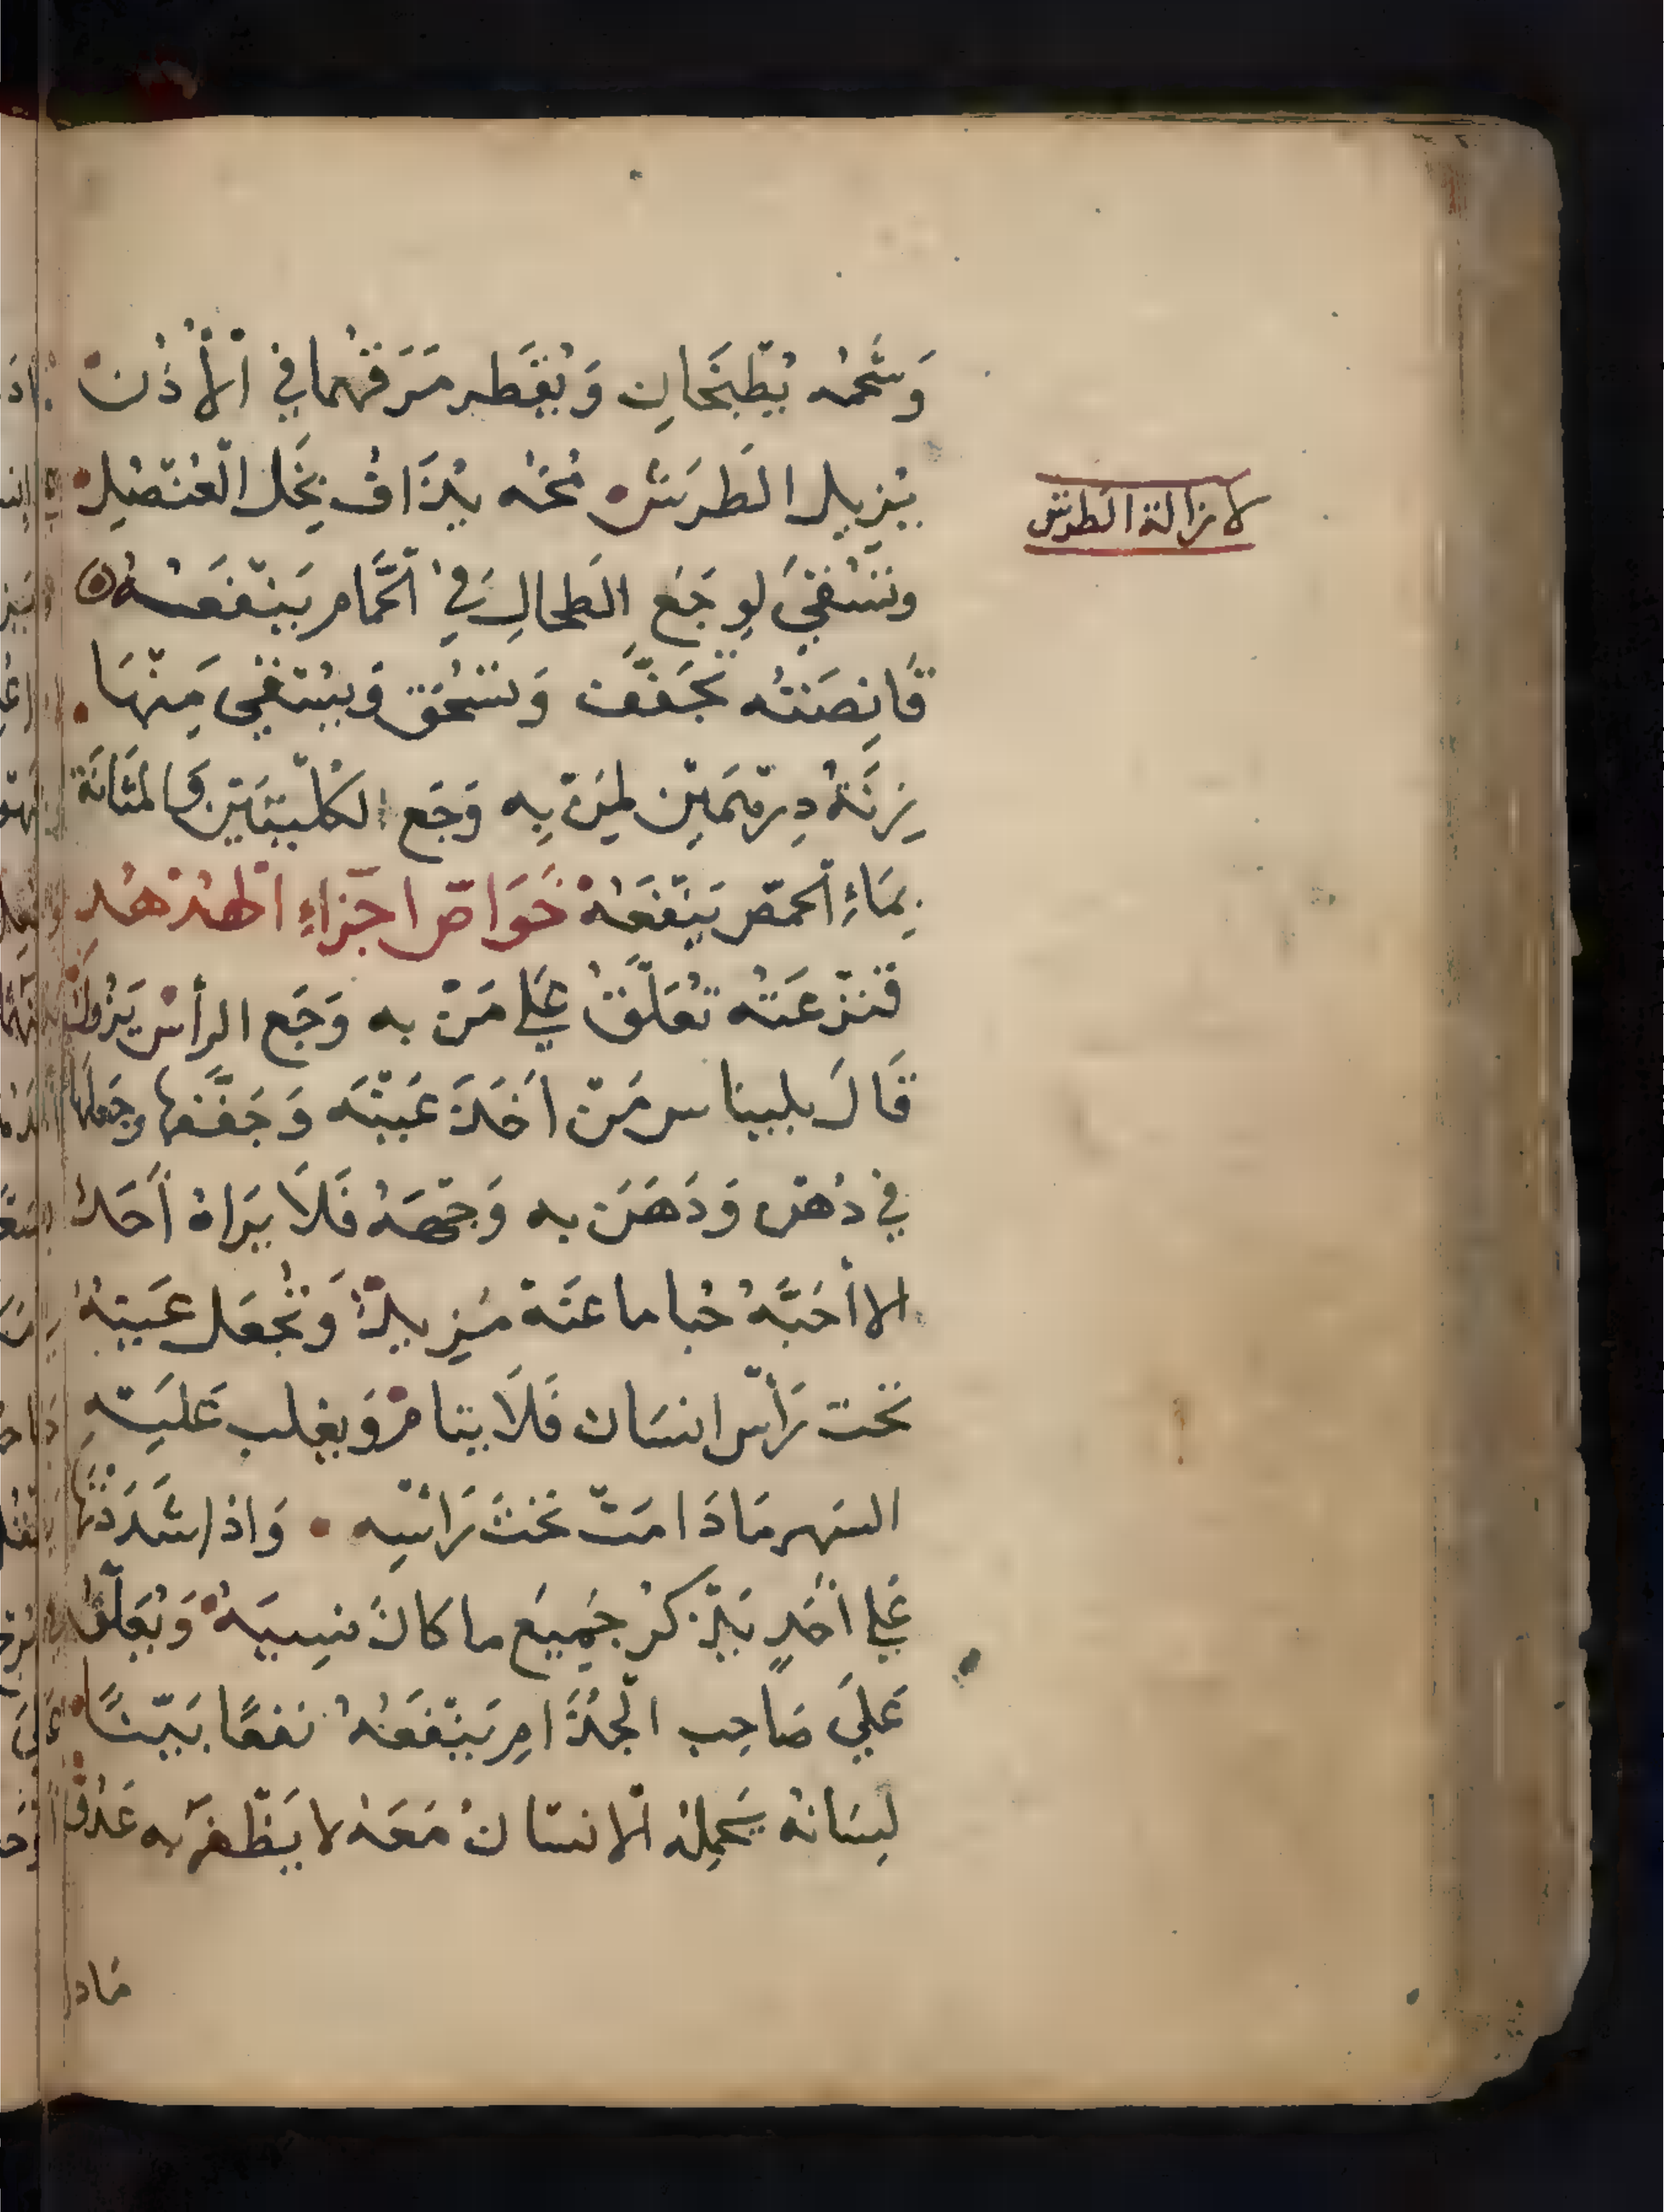 وَشَحْمُه يُطْبَخَانِ وَيُقَطر مَرَقُهُمَا فِي الْأُذُنْ
يُزِيل الطَرَش مُخُه يُذَافُ بِخَلِ الْعُنْصُلِ
وتُسْقَى لِوَجَعِ الطحَالِ فِي الْحَّمام يَنْفَعَهُ
قَانِصَتُه تُجَفَّفْ وَتسْحَق وَيُسْتقي مِنْهَا
زِنَةُ دِرْهَمَيْن لِمَنْ بِه وَجَع الكلْيَتَيْن وَالمَثَانَة
بِمَاءِ الْحمّص يَنْفَعَهُ خَوَاصّ اجْزَاءِ الْهُدْهُد
قنزعَتُه تُعَلَّقُ عَلي مَنْ به وَجَع الرأس يَزُول
قَالَ بليناس مَنْ اَخَذَ عَيْنَه وَجَفَّفها وجعلها
في دُهْن وَدَهَنَ به وَجْهَهُ فَلَا يَرَاهُ أَحَدْ
الا أحَبَّهُ حُبا ما عَنهَ مَزِيدْ وَتُجعَل عَينهُ
تَحْت رَأس انسَان فَلَا ينامْ وَيغلب عَلَيْهِ
السَهر مَا دَامَتْ تَحْتَ رَاسِه وَاذا شَدَدْتَهَا
عَلي أحَدٍ يَذْكُرْ جَمِيعَ ما كَانَ نسِيَهْ وَتُعَلّق
عَليَ صَاحِب الْجُذَامِ يَنْفَعَهُ نَفعًا بَيّنًا
لِسَانهُ يَحملهُ الْانسَانُ مَعَهُ لا يَظْفر به عَدُو
مَاد
لازالة الطرش